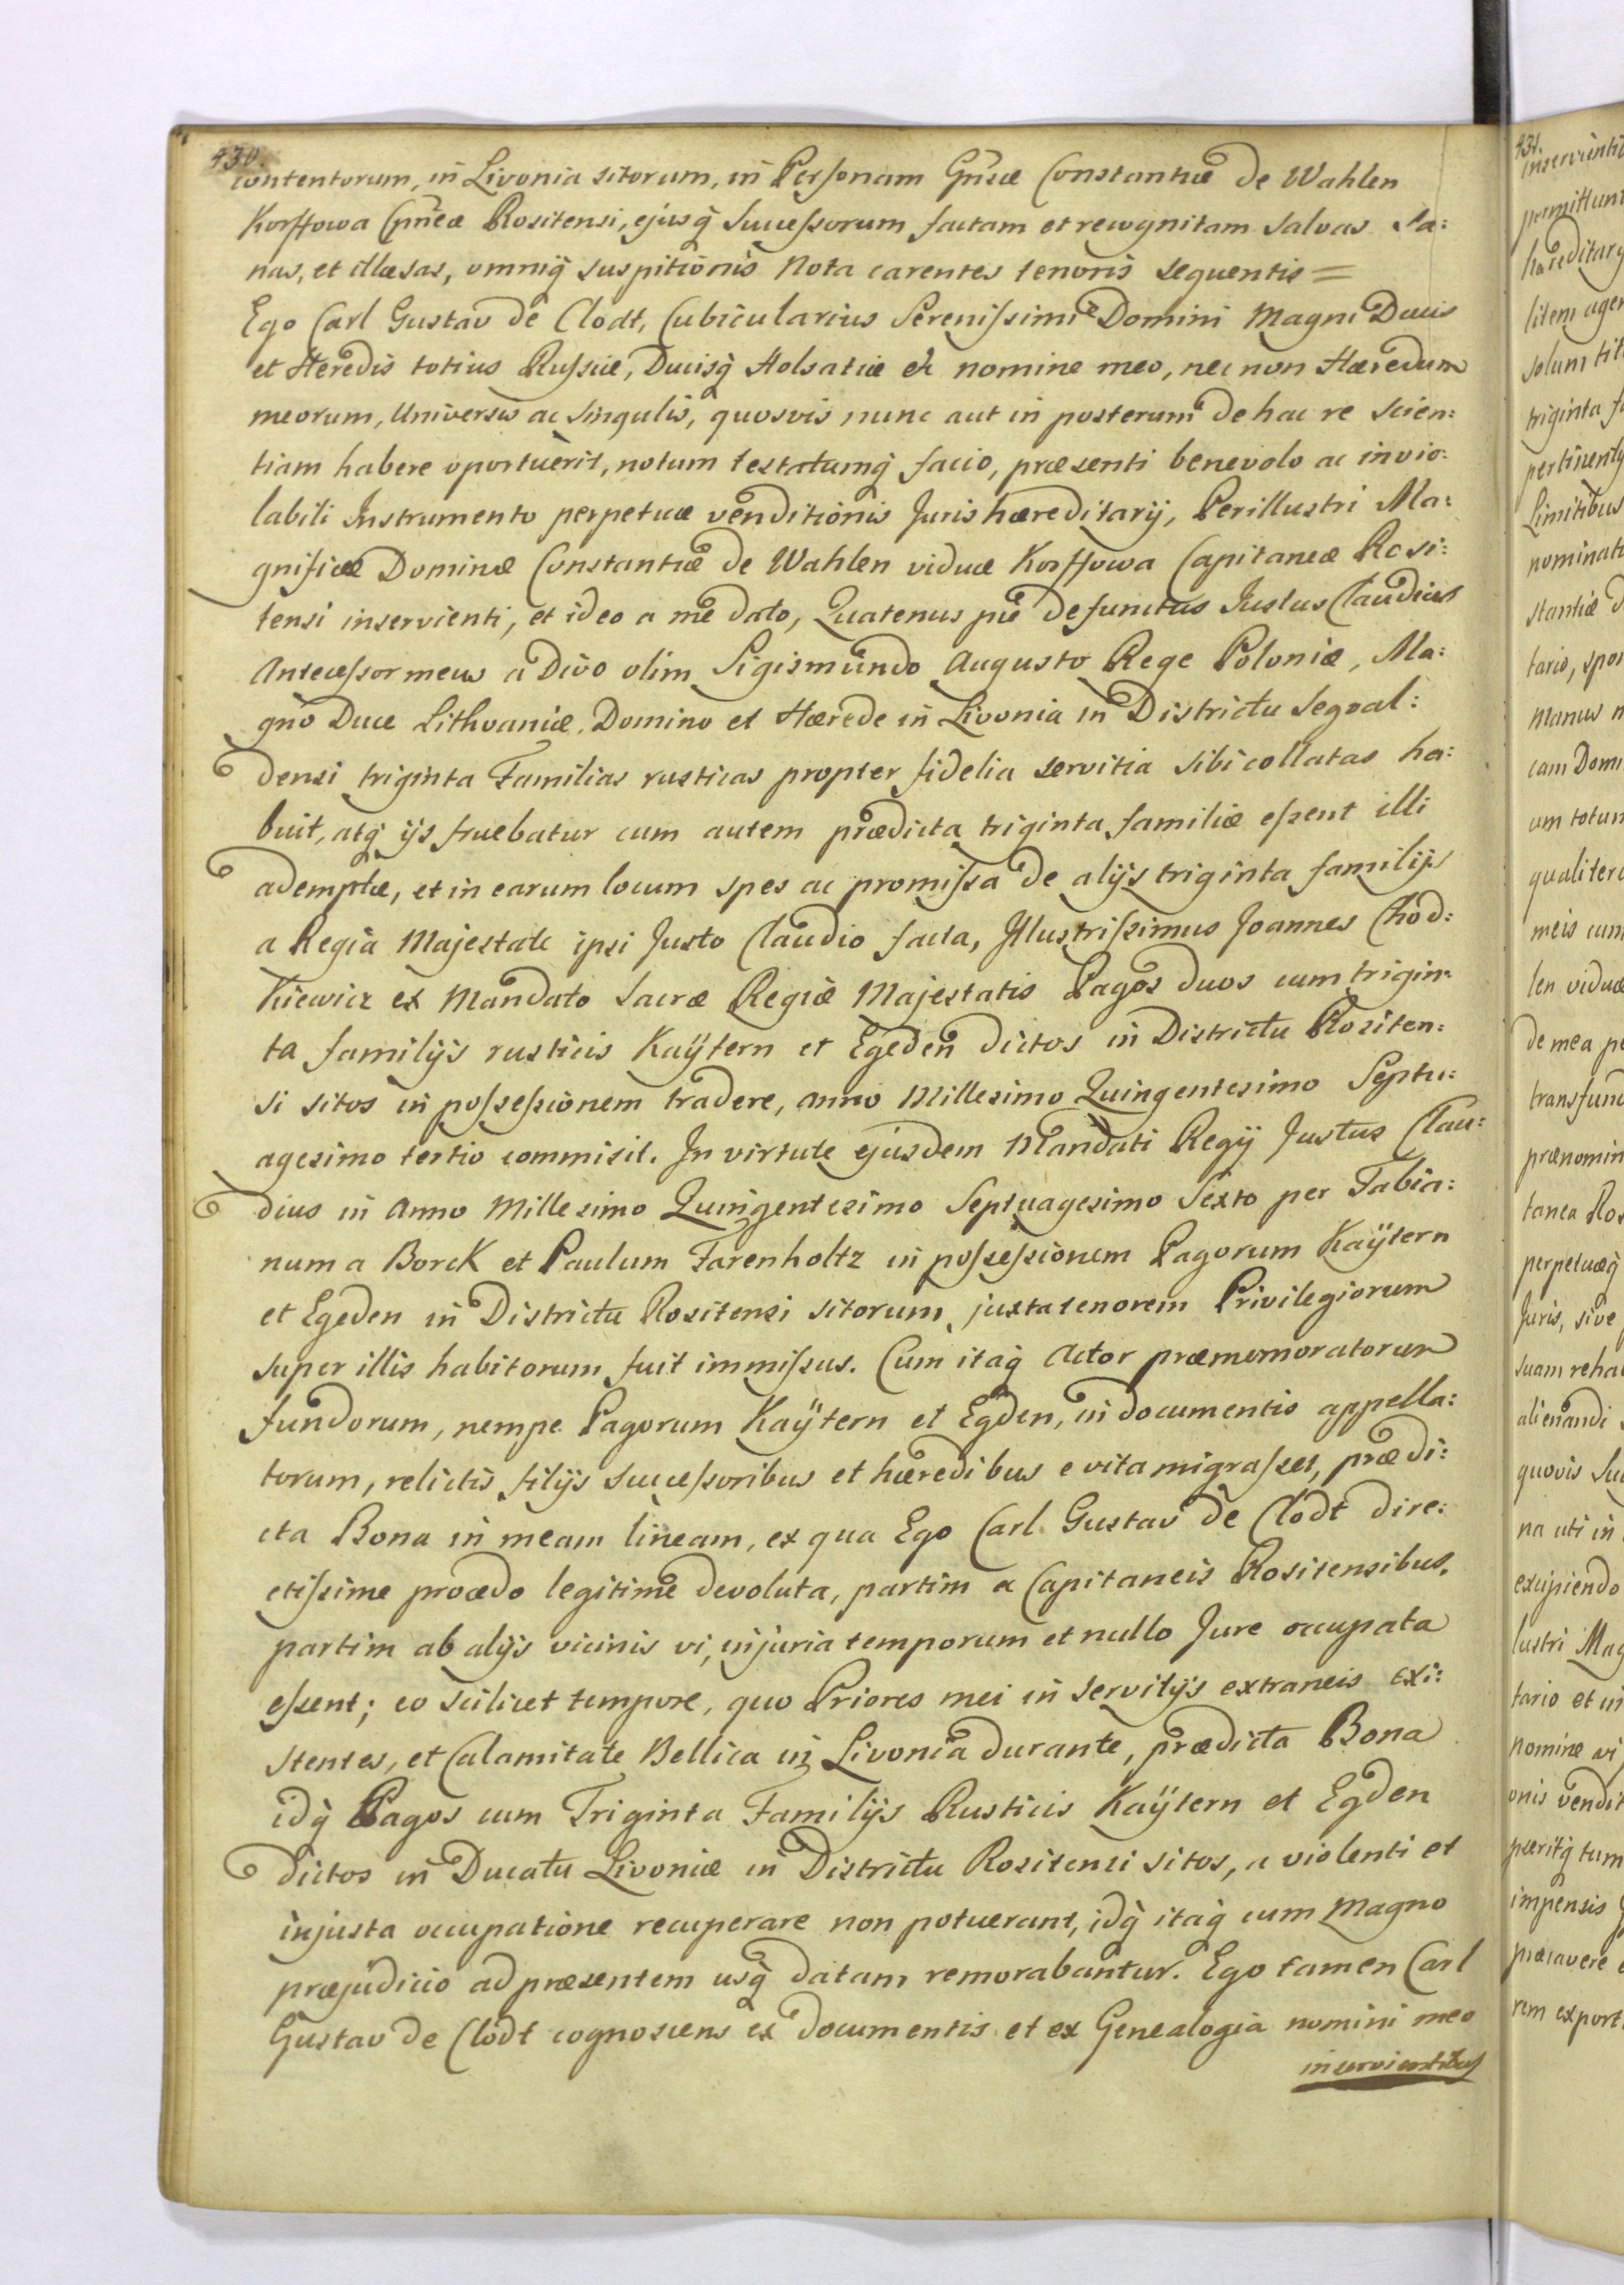 430.
contentorum, in Livonia sitorum, in Personam Gn̄sæ Constantiæ de Wahlen
Korffowa Cpn̄eæ Rositensi, ejusq̀ Successorum factam et recognitam salvas sa:
nas, et illæsas, omniq̀ suspitionis Nota carentes tenoris sequentis =
Ego Carl Gustav de Clodt, Cubicularius Serenissimi Domini Magni Ducis
et Heredis totius Russiæ, Ducisq̀ Holsatiæ etc nomine meo, nec non Hæredum
meorum, Universis ac singulis, quosvis nunc aut in posterum de hac re scien:
tiam habere oportuerit, notum testatumq̀ facio, præsenti benevolo ac invio:
labili Instrumento perpetuæ venditionis Juris hæreditarij, Perillustri Ma:
gnificæ Dominæ Constantiæ de Wahlen viduæ Korffowa Capitaneæ Rosi:
tensi inservienti, et ideo a me dato, Quatenus pie defunctus Justus Claudius
Antecessor meus a Divo olim Sigismundo Augusto Rege Poloniæ, Ma:
gno Duce Lithvaniæ, Domino et Hærede in Livonia in Districtu Segval:
densi triginta Familias rusticas propter fidelia servitia sibi collatas ha:
buit, atq̀ ijs fruebatur cum autem prædicta triginta familiæ essent illi
ademptæ, et in earum locum spes ac promissa de alijs triginta familijs
a Regia Majestate ipsi Justo Claudio facta, Illustrissimus Joannes Chod:
kiewicz ex Mandato Sacræ Regiæ Majestatis Pagos duos cum trigin:
ta familijs rusticis Kaÿtern et Egeden dictos in Districtu Rositen:
si sitos in possessionem tradere, anno Millesimo Quingentesimo Septu:
agesimo tertio commisit. In virtute ejusdem Mandati Regij Justus Clau:
dius in Anno Millesimo Quingentesimo Septuagesimo Sexto per Fabia:
num a Borck et Paulum Farenholtz in possessionem Pagorum Kaÿtern
et Egeden in Districtu Rositensi sitorum, juxta tenorem Privilegiorum
super illis habitorum fuit immissus. Cum itaq̀ Actor præmemoratorum
fundorum, nempe Pagorum Kaÿtern et Egden, in documentis appella:
torum, relictis filijs successoribus et hæredibus e vita migrasset, prædi:
cta Bona in meam lineam, ex qua Ego Carl Gustav de Clodt dire:
ctissime procedo legitime devoluta, partim a Capitaneis Rositensibus,
partim ab alijs vicinis vi, injuria temporum et nullo Jure occupata
essent; eo scilicet tempore, quo Priores mei in servitijs extraneis exi:
stentes, et Calamitate Bellica in Livonia durante, prædicta Bona
idq̀ Pagos cum Triginta Familijs Rusticis Kaÿtern et Egden
dictos in Ducatu Livoniæ in Districtu Rositensi sitos, a violenti et
injusta occupatione recuperare non potuerant, idq̀ itaq̀ cum Magno
præjudicio ad præsentem usq̀ datam remorabantur. Ego tamen Carl
Gustav de Clodt cognoscens ex documentis et ex Genealogia nomini meo
inservientibus
431.
inservienti
permittunt
hæreditary
litem agen
solum tit
triginta fa
pertinenty
Limitibus
nominat
stantiæ d
tario, spon
manus n
cam Domi
um totum
qualiter
meis cum
len viduæ
de mea pe
transfund
prænomin
tanea Ros
perpetuæq̀
Juris, sive
suam reha
alienandi
quovis Su
na uti in
excipiendo
lustri Mag
tario et in
nomine
onis vendit
pœritq̀ tum
impensis
præcavere
rem export